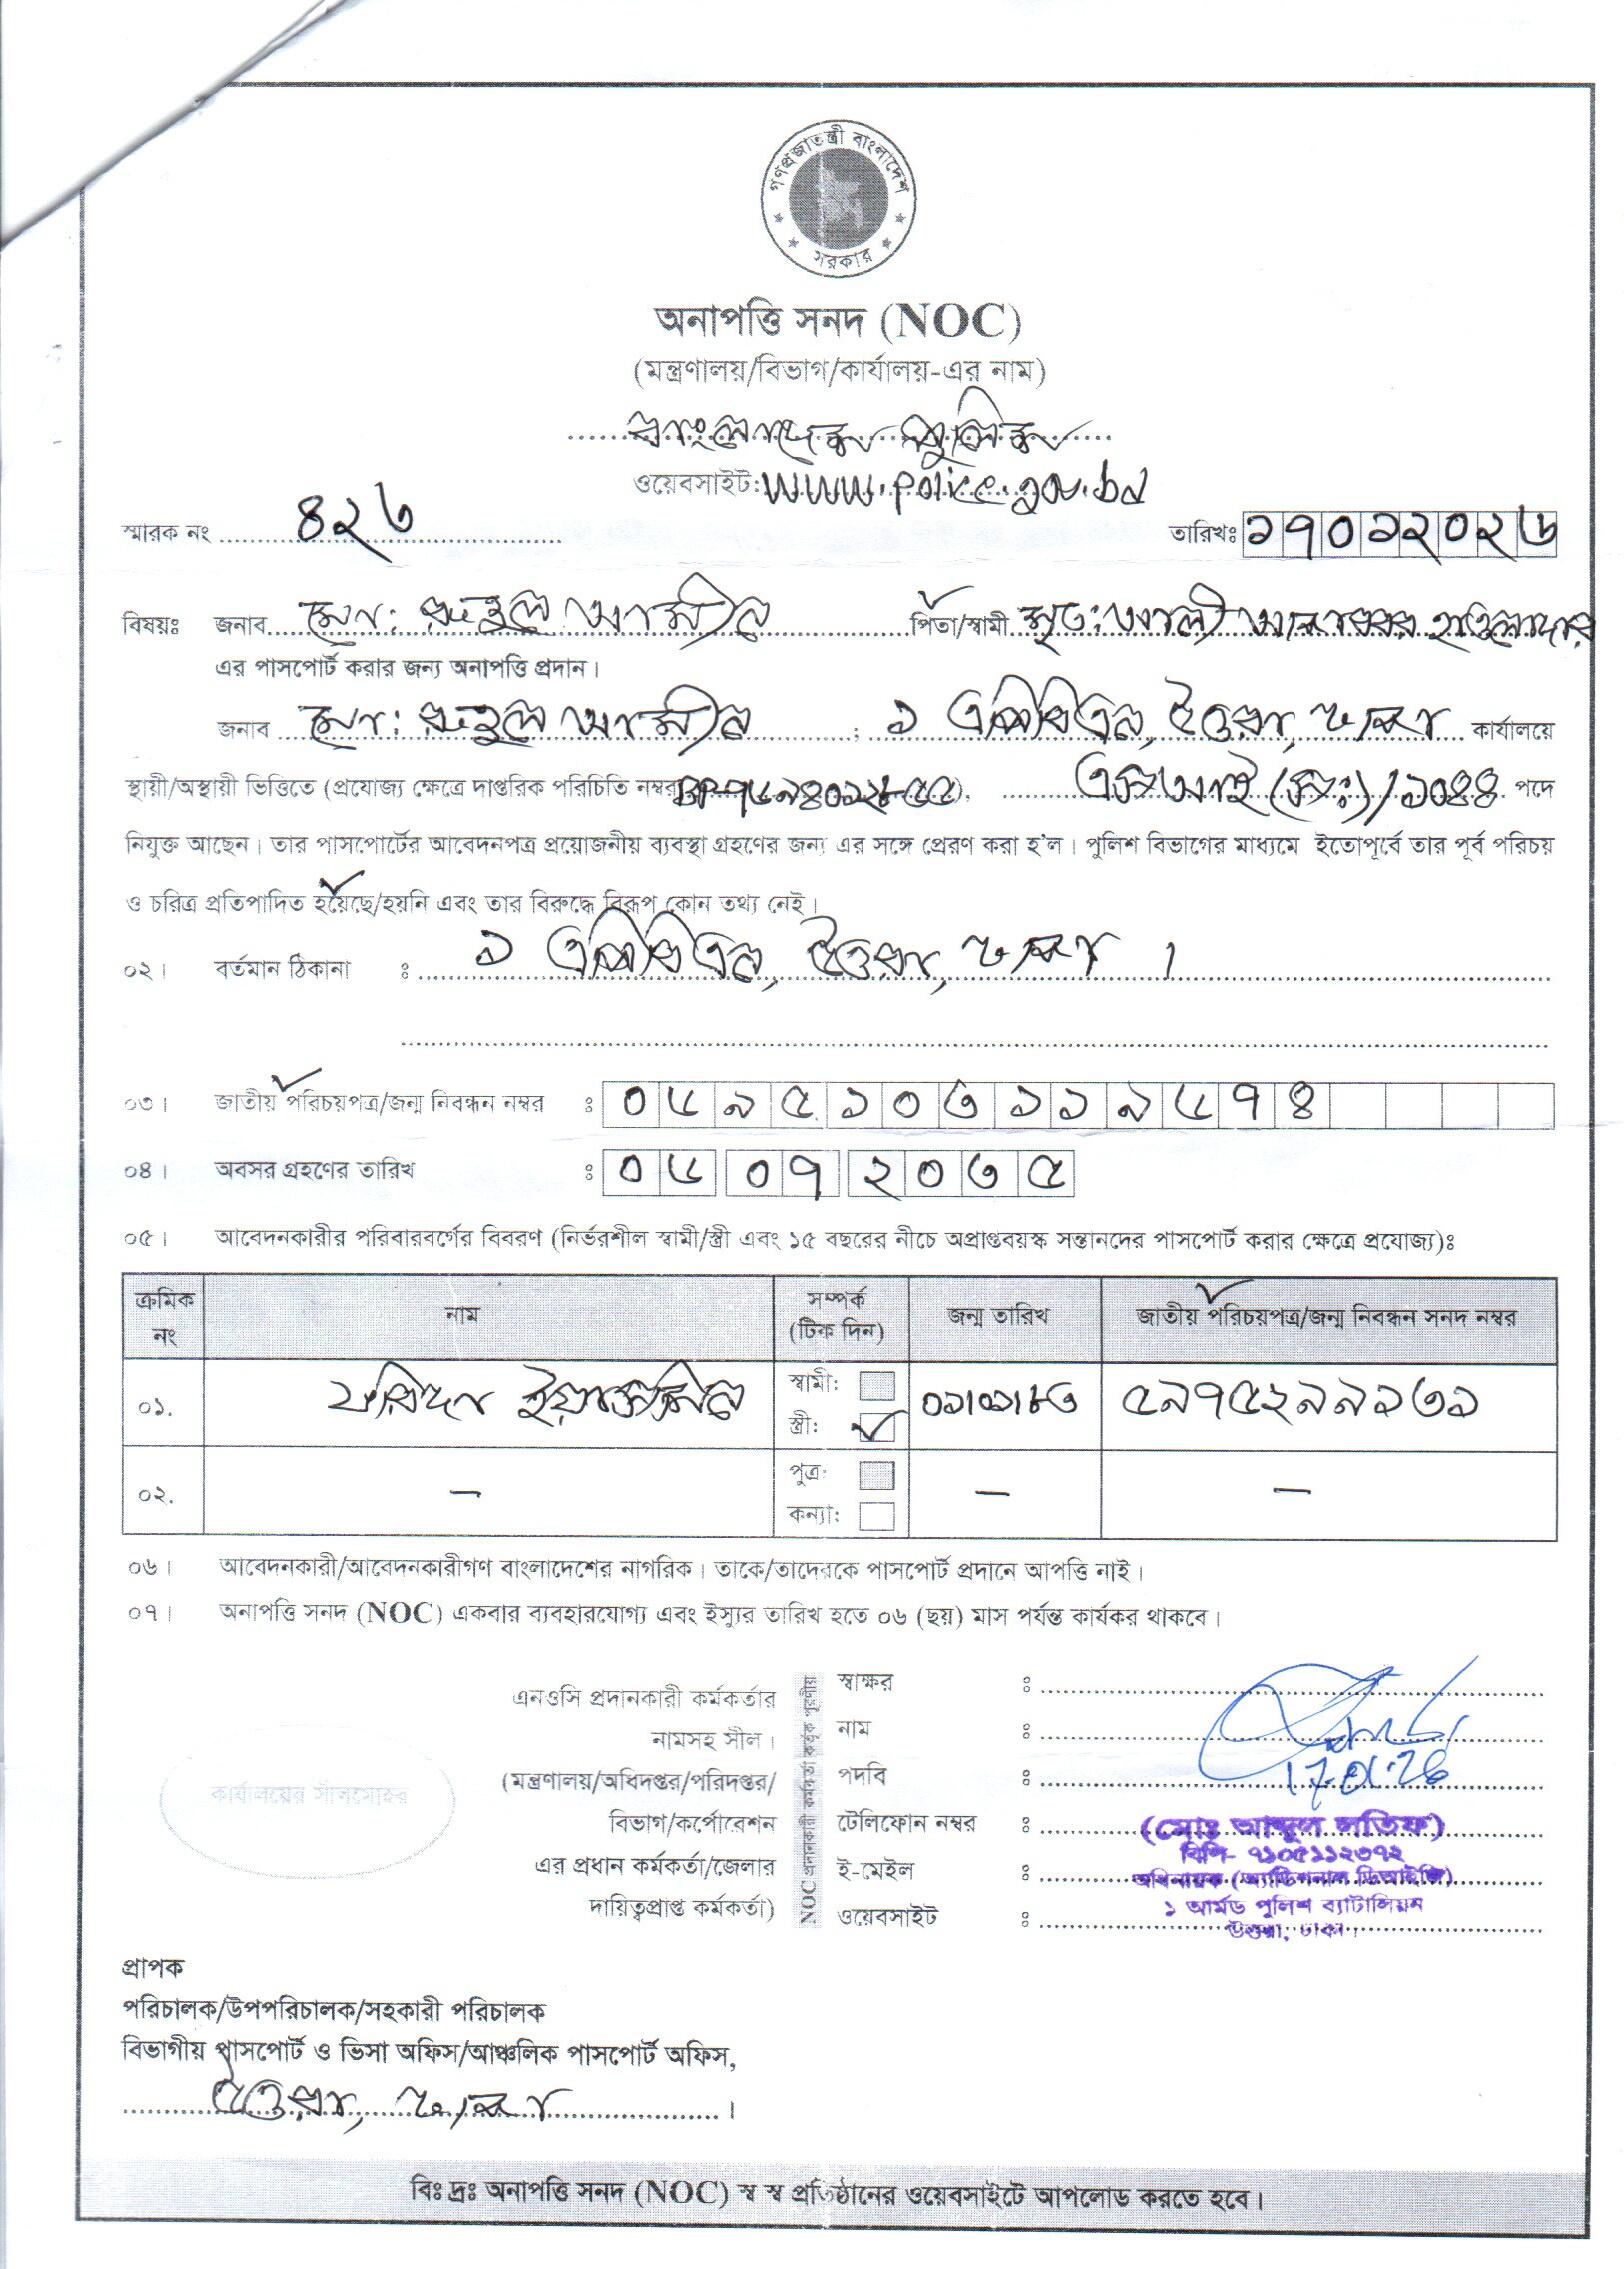 গণপ্রজাতন্ত্রী বাংলাদেশ
সরকার
অনাপত্তি সনদ (NOC)
(মন্ত্রণালয়/বিভাগ/কার্যালয়-এর নাম)
বাংলাদেশ পুলিশ
ওয়েবসাইট: www.police.gov.bd
স্মারক নং ৪২৬ তারিখঃ ১৭০১২০২৬
বিষয়ঃ জনাব মো: রুহুল আমীন পিতা/স্বামী মৃত: আলী আকবর হাওলাদার
এর পাসপোর্ট করার জন্য অনাপত্তি প্রদান।
জনাব মো: রুহুল আমীন ; ১ এপিবিএন, উত্তরা, ঢাকা কার্যালয়ে
স্থায়ী/অস্থায়ী ভিত্তিতে (প্রযোজ্য ক্ষেত্রে দাপ্তরিক পরিচিতি নম্বর ), এসআই(সঃ)/১০৪৪ পদে
নিযুক্ত আছেন। তার পাসপোর্টের আবেদনপত্র প্রয়োজনীয় ব্যবস্থা গ্রহণের জন্য এর সঙ্গে প্রেরণ করা হ'ল। পুলিশ বিভাগের মাধ্যমে ইতোপূর্বে তার পূর্ব পরিচয়
ও চরিত্র প্রতিপাদিত হয়েছে/হয়নি এবং তার বিরুদ্ধে বিরূপ কোন তথ্য নেই।
০২। বর্তমান ঠিকানা ঃ ১ এপিবিএন, উত্তরা, ঢাকা।
০৩। জাতীয় পরিচয়পত্র/জন্ম নিবন্ধন নম্বর ঃ ০৬৯৫১০৩১১৯৬৭৪
০৪। অবসর গ্রহণের তারিখ ঃ ০৬ ০৭ ২০৩৫
০৫। আবেদনকারীর পরিবারবর্গের বিবরণ (নির্ভরশীল স্বামী/স্ত্রী এবং ১৫ বছরের নীচে অপ্রাপ্তবয়স্ক সন্তানদের পাসপোর্ট করার ক্ষেত্রে প্রযোজ্য)ঃ
ক্রমিক নং নাম সম্পর্ক (টিক দিন) জন্ম তারিখ জাতীয় পরিচয়পত্র/জন্ম নিবন্ধন সনদ নম্বর
০১. ফরিদা ইয়াসমিন স্বামী: স্ত্রী: ০১/০১/৮৩ ৫৯৭৫২৯৯১৩১
০২. – পুত্র: কন্যা: – –
০৬। আবেদনকারী/আবেদনকারীগণ বাংলাদেশের নাগরিক। তাকে/তাদেরকে পাসপোর্ট প্রদানে আপত্তি নাই।
০৭। অনাপত্তি সনদ (NOC) একবার ব্যবহারযোগ্য এবং ইস্যুর তারিখ হতে ০৬ (ছয়) মাস পর্যন্ত কার্যকর থাকবে।
কার্যালয়ের সীলমোহর
এনওসি প্রদানকারী কর্মকর্তার
নামসহ সীল।
(মন্ত্রণালয়/অধিদপ্তর/পরিদপ্তর/
বিভাগ/কর্পোরেশন
এর প্রধান কর্মকর্তা/জেলার
দায়িত্বপ্রাপ্ত কর্মকর্তা)
NOC প্রদানকারী কর্মকর্তা কর্তৃক পূরণীয়
স্বাক্ষর ঃ
নাম ঃ
পদবি ঃ 17.01.26
টেলিফোন নম্বর ঃ (মোঃ আব্দুল লতিফ)
বিপি- ৭১০৫১১২৩৭২
ই-মেইল ঃ অধিনায়ক (অ্যাডিশনাল ডিআইজি)
১ আর্মড পুলিশ ব্যাটালিয়ন
ওয়েবসাইট ঃ উত্তরা, ঢাকা।
প্রাপক
পরিচালক/উপপরিচালক/সহকারী পরিচালক
বিভাগীয় পাসপোর্ট ও ভিসা অফিস/আঞ্চলিক পাসপোর্ট অফিস,
উত্তরা, ঢাকা।
বিঃ দ্রঃ অনাপত্তি সনদ (NOC) স্ব স্ব প্রতিষ্ঠানের ওয়েবসাইটে আপলোড করতে হবে।